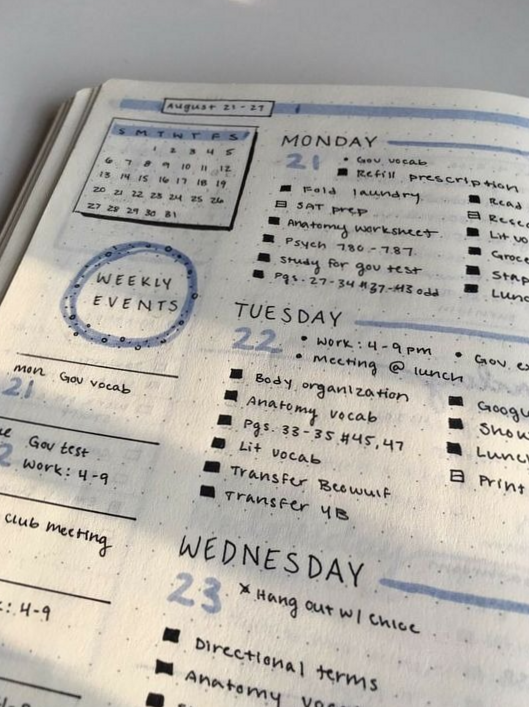 August 21-27
S M T W T F S
1 2 3 4 5
6 7 8 9 10 11 12
13 14 15 16 17 18 19
20 21 22 23 24 25 26
27 28 29 30 31
WEEKLY
EVENTS
mon Gov vocab
21
Gov test
Work: 4-9
club meeting
: 4-9
MONDAY
21
• Gov vocab
Refill prescription
Fold laundry
SAT prep
Anatomy worksheet
Psych 780-787
Study for gov test
Pgs. 27-34 #37-43 odd
Read
Lit v
Groce
Lun
TUESDAY
22
• Work: 4-9pm
• Meeting @ lunch
• Gov. e
Body organization
Anatomy vocab
Pgs. 33-35 #45,47
Lit vocab
Transfer Beowulf
Transfer 4B
Googl
Sho
Lunc
Print
WEDNESDAY
23
x Hang out w/ Chloe
Directional terms
Anatomy